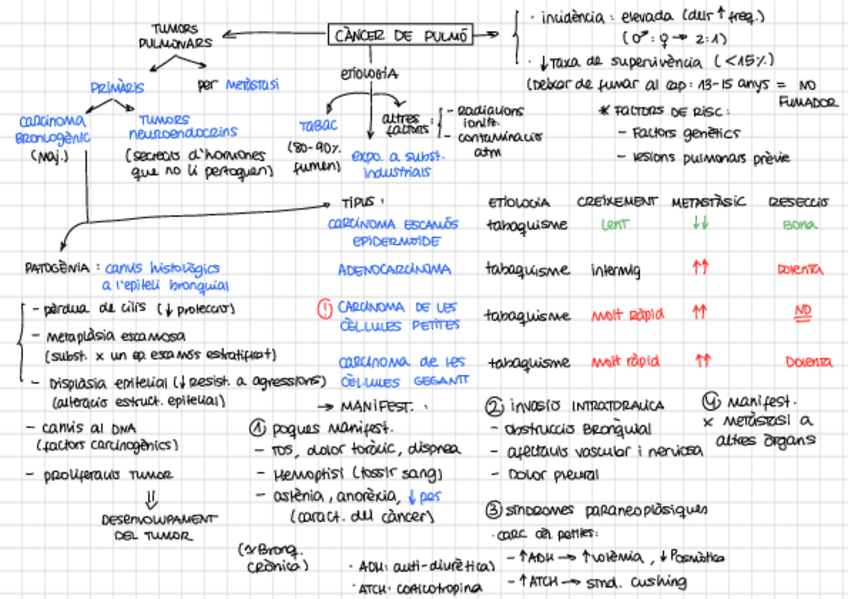 CÀNCER DE PULMÓ
· incidència: elevada (dels ↑ freq.)
(♂ : ♀ → 2:1)
· ↓ Taxa de supervivència (<15%)
(Deixar de fumar al cap: 13-15 anys = NO
FUMADOR
* FACTORS DE RISC:
- Factors genètics
- lesions pulmonars prèvie
TUMORS
PULMONARS
PRIMÀRIS
per metàstasi
CARCINOMA
BRONCOGÈNIC
(Maj.)
TUMORS
neuroendocrins
(secrecio d'hormones
que no li pertoquen)
etiologia
TABAC
(80-90%
fumen)
expo. a subst.
industrials
altres
factors:
- Radiacions
ionitz.
- contaminacio
atm
TIPUS:
ETIOLOGIA CREIXEMENT METASTÀSIC RESECCIÓ
CARCINOMA ESCAMÓS
EPIDERMOIDE
tabaquisme lent ↓↓ Bona
ADENOCARCINOMA
tabaquisme intermig ↑↑ Dolenta
! CARCINOMA DE LES
CÈL·LULES PETITES
tabaquisme molt ràpid ↑↑ NO
CARCINOMA de les
CÈL·LULES GEGANTT
tabaquisme molt ràpid ↑↑ Dolenta
PATOGÈNIA: canvis histològics
a l'epiteli bronquial
- pèrdua de cilis (↓ proteccio)
- metaplàsia escamosa
(subst. x un ep. escamós estratificat)
- Displàsia epitelial (↓ Resist. a agressions)
(alteracio estruct. epitelial)
- canvis al DNA
(factors carcinogènics)
- proliferacio TUMOR
⇓
DESENVOLUPAMENT
DEL TUMOR
→ MANIFEST.:
① poques manifest.
- TOS, dolor toràcic, dispnea
- Hemoptisi (tossir sang)
- astènia, anorèxia, ↓ pes
(caract. del càncer)
② invasió INTRATORÀCICA
- obstruccio Bronquial
- afectacio vascular i nerviosa
- Dolor pleural
③ síndromes paraneoplàsiques
· carc. cèl. petites:
- ↑ADH → ↑volèmia, ↓P osmòtica
- ↑ATCH → sind. cushing
④ manifest.
x metàstasi a
altres òrgans
Bronq.
crònica)
· ADH: anti-diurètica)
· ATCH: corticotropina